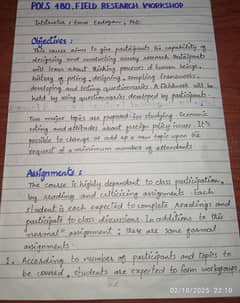 POLS 480. FIELD RESEARCH WORKSHOP
Instructor : Emre Erdogan, PhD.
Objectives :
This course aims to give participants the capability of
designing and conducting survey research. Participants
will learn about thinking process of human beings,
history of polling, designing, sampling frameworks,
developing and testing questionnaires. A fieldwork will be
held by using questionnaires developed by participants.
Two major topics are proposed for studying : Economic
voting and attitudes about foreign policy issues. It's
possible to change or add up a new topic upon the
request of a minimum number of attendants
Assignments :
The course is highly dependent to class participation,
by reading and criticising assignments. Each
student is each expected to complete readings and
participate to class discussions. In additions to this
"normal" assignment ; there are some formal
assignments.
1. According to number of participants and topics to
be covered, students are expected to form workgroups
02/10/2025 22:10